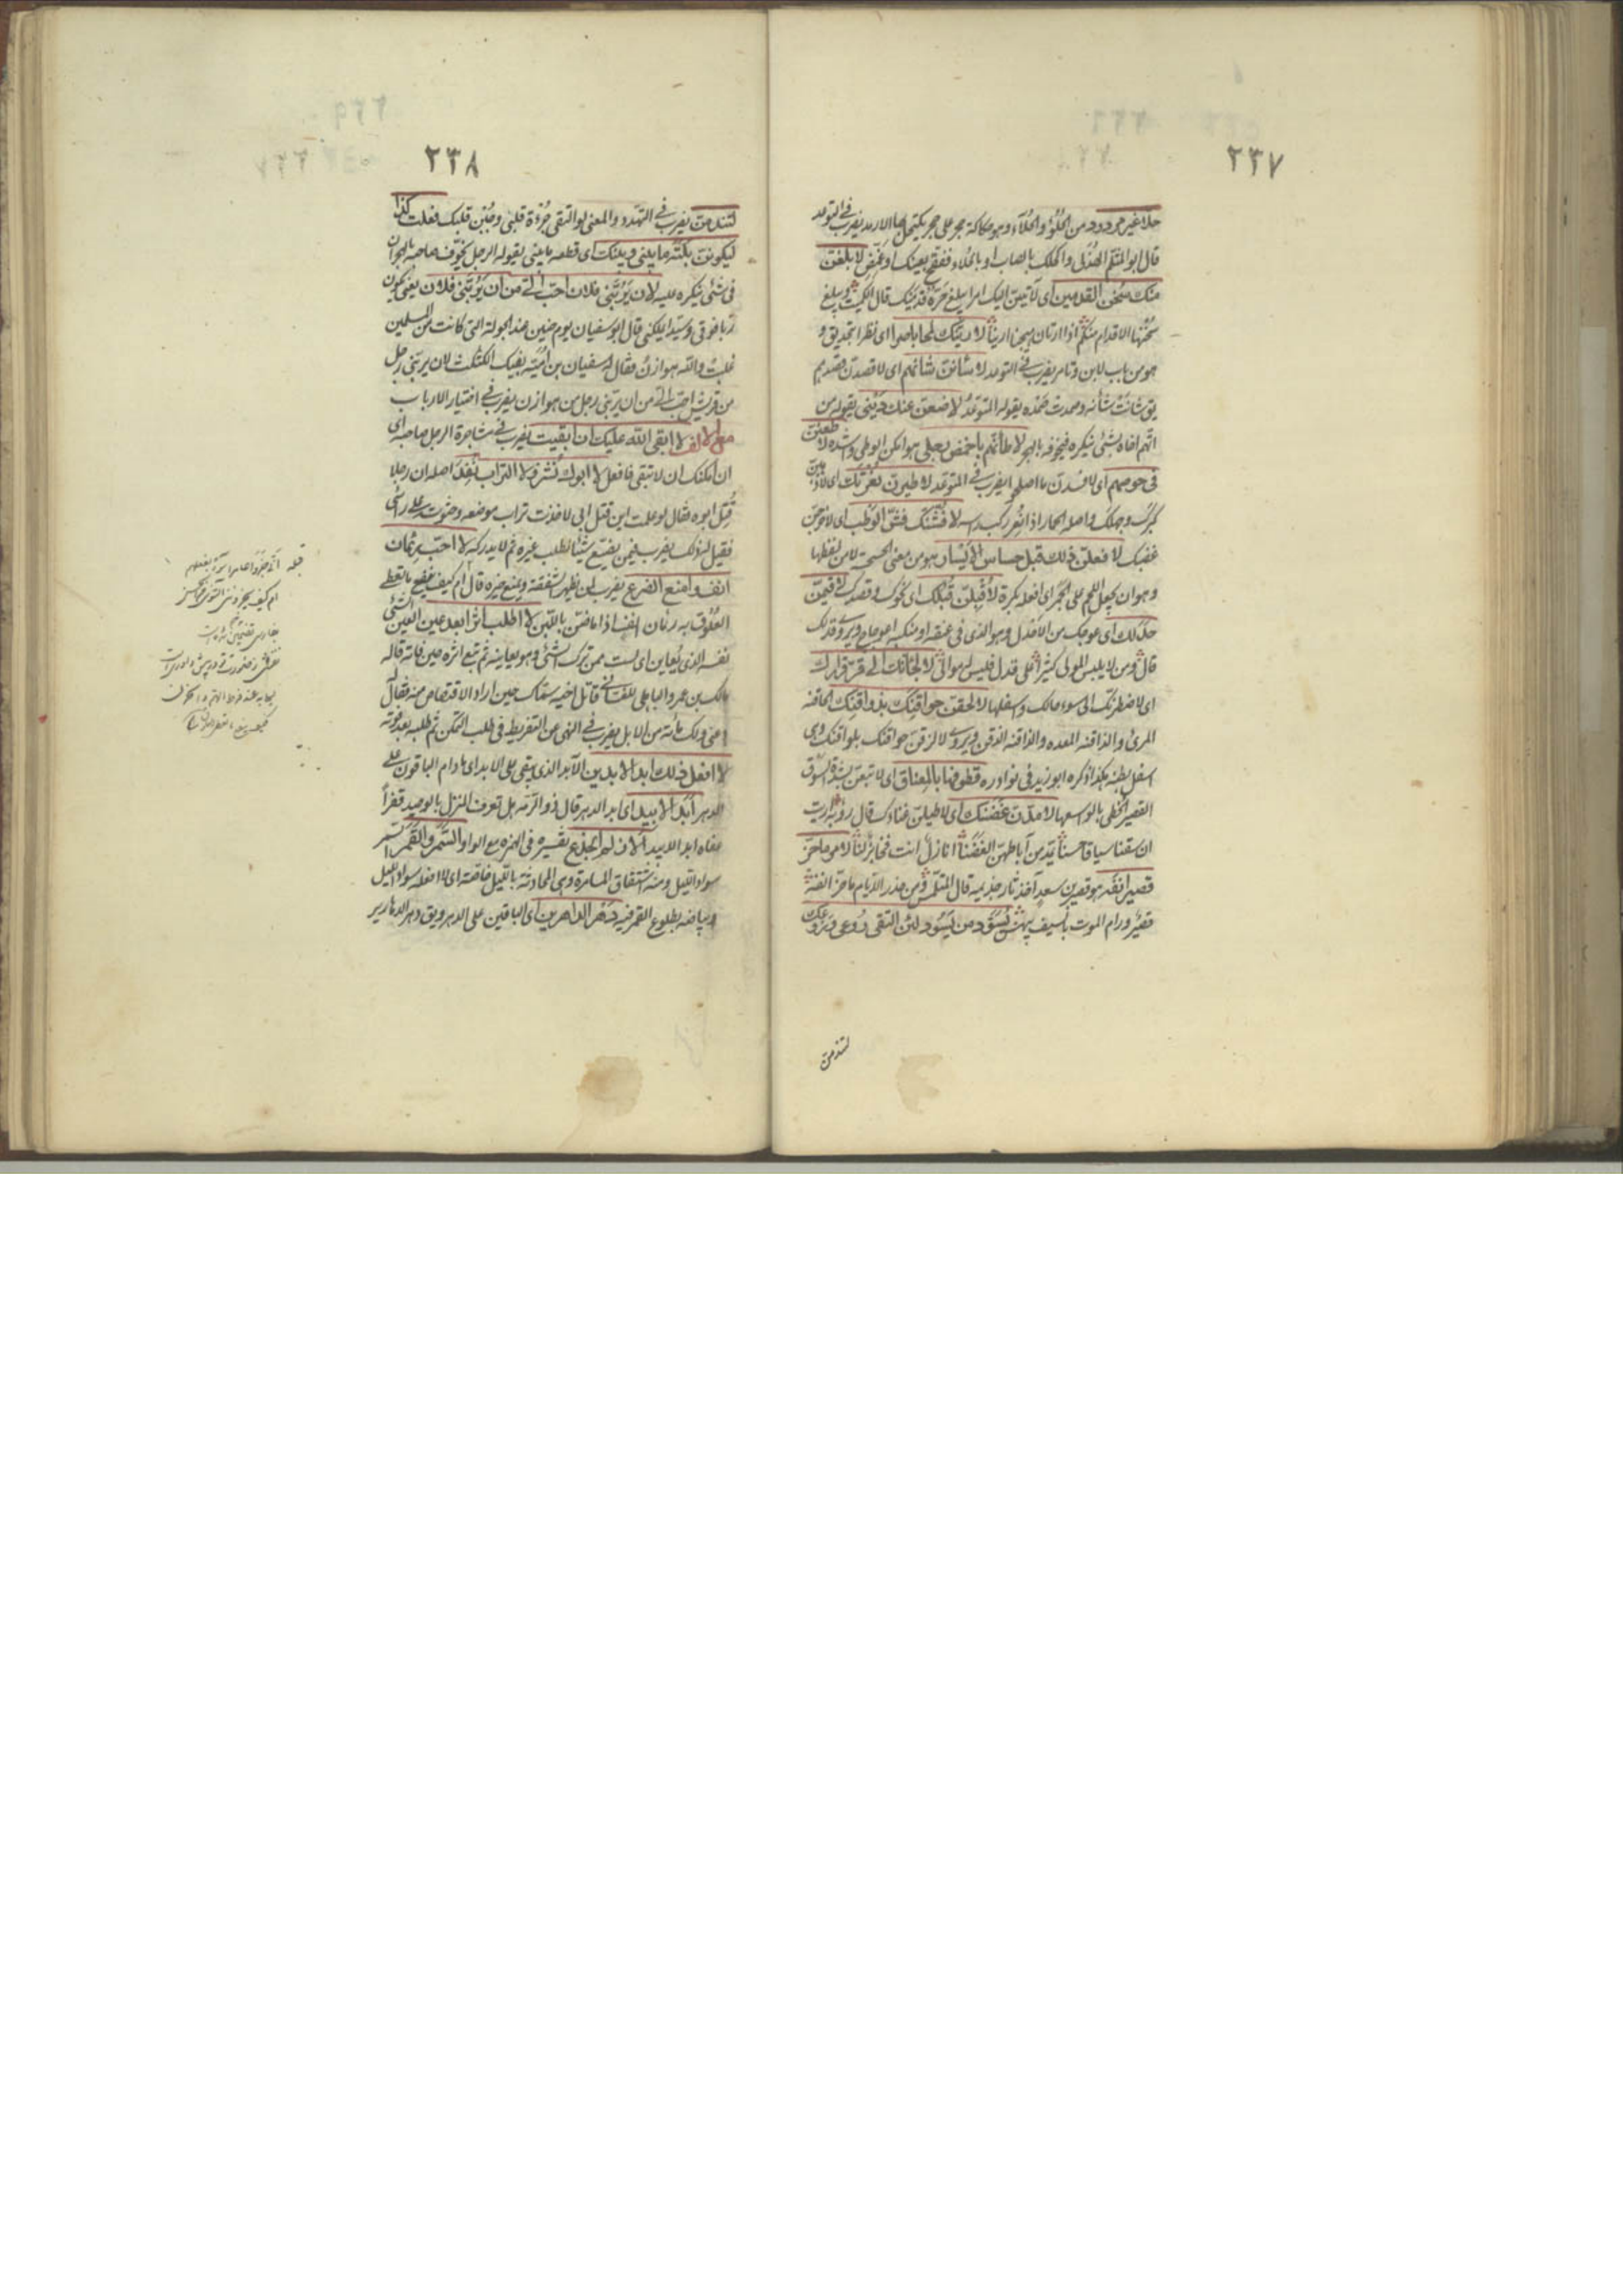 ٢٣٧
حلأ غير مردود من الحلوء والحلاءة وهو حكاكة حجر على حجر يكتحل بها الارمد يضرب في التوعد
قال ابو المثلم الهذلي واكحلك بالصاب او بالحلاء ففقح بعينك او غمض لا بلغن
منك سخن القدمين اى لآتين اليك امرا يبلغ حره قدميك قال الكميت ويبلغ
سخنها الاقدام منكم اذا ارتان هيجتا ارينا لارينك لمحا باصرا اى نظرا بتحديق و
هو من باب لابن وتامر يضرب في التوعد لا شأنن شأنهم اى لاقصدن قصدهم
يق شأنت شأنه وصمدت صمده يقوله المتوعد لاضعن عنك ديني يقوله من
اتهم اخاه بشئ يكرهه فيخوفه بالهجر لاطأنهم باخمص رجلى هو امكن الوطى واشده لا طعنن
في حوصهم اى لافسدن ما اصلحوا يضرب في التوعد لاطيرن نعرتك اى لاذهبن
كبرك وجهلك واصله الحمار اذا نعر ركب راسه لافشنك فش الوطب اى لاخرجن
غضبك لا فعلن ذلك قبل حساس الايسار هو من معنى الحس لا من لفظها
وهو ان يجعل اللحم على الجمر اى افعله بكرة لاقبلن قبلك اى نحوك وقصدك لاقيمن
حدلك اى عوجك من الاحدل وهو الذى فى عنقه او منكبه اعوجاج ويروى قدلك
قال ومن لا يلبس المولى كثيرا على قدل فليس له موالى لالجئنك الى قر قرارك
اى لاضطرنك الى سوء حالك واسفلها لالحقن حواقنك بذواقنك الحاقنة
المرئ والذاقنة المعدة والذاقنة الذقن ويروى لالزقن حواقنك بلواقنك وهى
اسفل بطنه هكذا ذكره ابو زيد فى نوادره قطوفها بالمعناق اى لاتبعن بشدة السوق
القصير الخطى بالواسعها لامدن غضنك اى لاطيلن عناءك قال رؤبة اريت
ان سقنا سياقا حسنا يمد من آباطهن الغضنا أنازل انت فخابز لنا لامر ما جز
قصير انفه هو قصير بن سعد آخذ ثار جذيمة قال المتلمس ومن حذر الايام ما حز انفه
قصير ورام الموت بالسيف بيهس يسود من يسود لئن التقى روعى وروعك
لتندمن
٢٣٨
لتندمن يضرب في التهدد والمعنى لو التقى جرءة قلبى وجبن قلبك فعلت كذا
ليكونن بلتة ما بيني وبينك اى قطعه ما بيني يقوله الرجل يخوف صاحبه بالهجران
فى شئ يكرهه لله لان يربني فلان احب الى من ان يربني فلان يعنى يكون
ربا فوقى وسيدا يملكنى قال ابو سفيان يوم حنين عند الجولة التى كانت من المسلمين
غلبت والله هوازن فقال له صفوان بن امية بفيك الكثكث لان يربنى رجل
من قريش احب الى من ان يربنى رجل من هوازن يضرب في اختيار الارباب
مع الالف لا ابقى الله عليك ان ابقيت يضرب في مشاجرة الرجل صاحبه اى
ان امكنك ان لا تبقى فافعل لا ابوك نشر ولا التراب نفد اصله ان رجلا
قتل ابوه فقال لو علمت اين قتل ابى لاخذت تراب موضعه وحثوت على راسى
فقيل له ذلك يضرب فيمن يضيع شيئا يطلب غيره ثم لا يدركه لا احب رئمان
انف وامنع الضرع يضرب لمن يظهر شفقة ويمنع خيره قال ام كيف ينفع ما تعطى
العلوق به رئمان انف اذا ما ضن باللبن لا اطلب اثرا بعد عين العين الشئ
نفسه الذى يعاين اى لست ممن ترك الشئ وهو يعاينه ثم تبع اثره حين فاته قاله
مالك بن عمرو الباهلى للغسانى قاتل اخيه سماك حين اراد الاقتصاص منه فقال له
دعنى ولك مائة من الابل يضرب فى النهى عن التفريط فى طلب الممكن ثم طلبه بعد فوته
لا افعل ذلك ابد الابدين الآبد الذى يبقى على الابد اى ما دام الباقون على
الدهر ابد الابيد اى ابد الدهر قال ذو الرمة هل تعرف المنزل بالوحيد قفرا
محاه ابد الابيد الازلم الجذع تفسيره فى الهمزة مع الواو السمر والقمر السمر
سواد الليل ومنه اشتقاق المسامرة وهى المحادثة بالليل خاصة اى لا افعله سواد الليل
وبياضه بطلوع القمر فيه دهر الداهرين اى الباقين على الدهر ويق دهر الدهارير
ام كيف